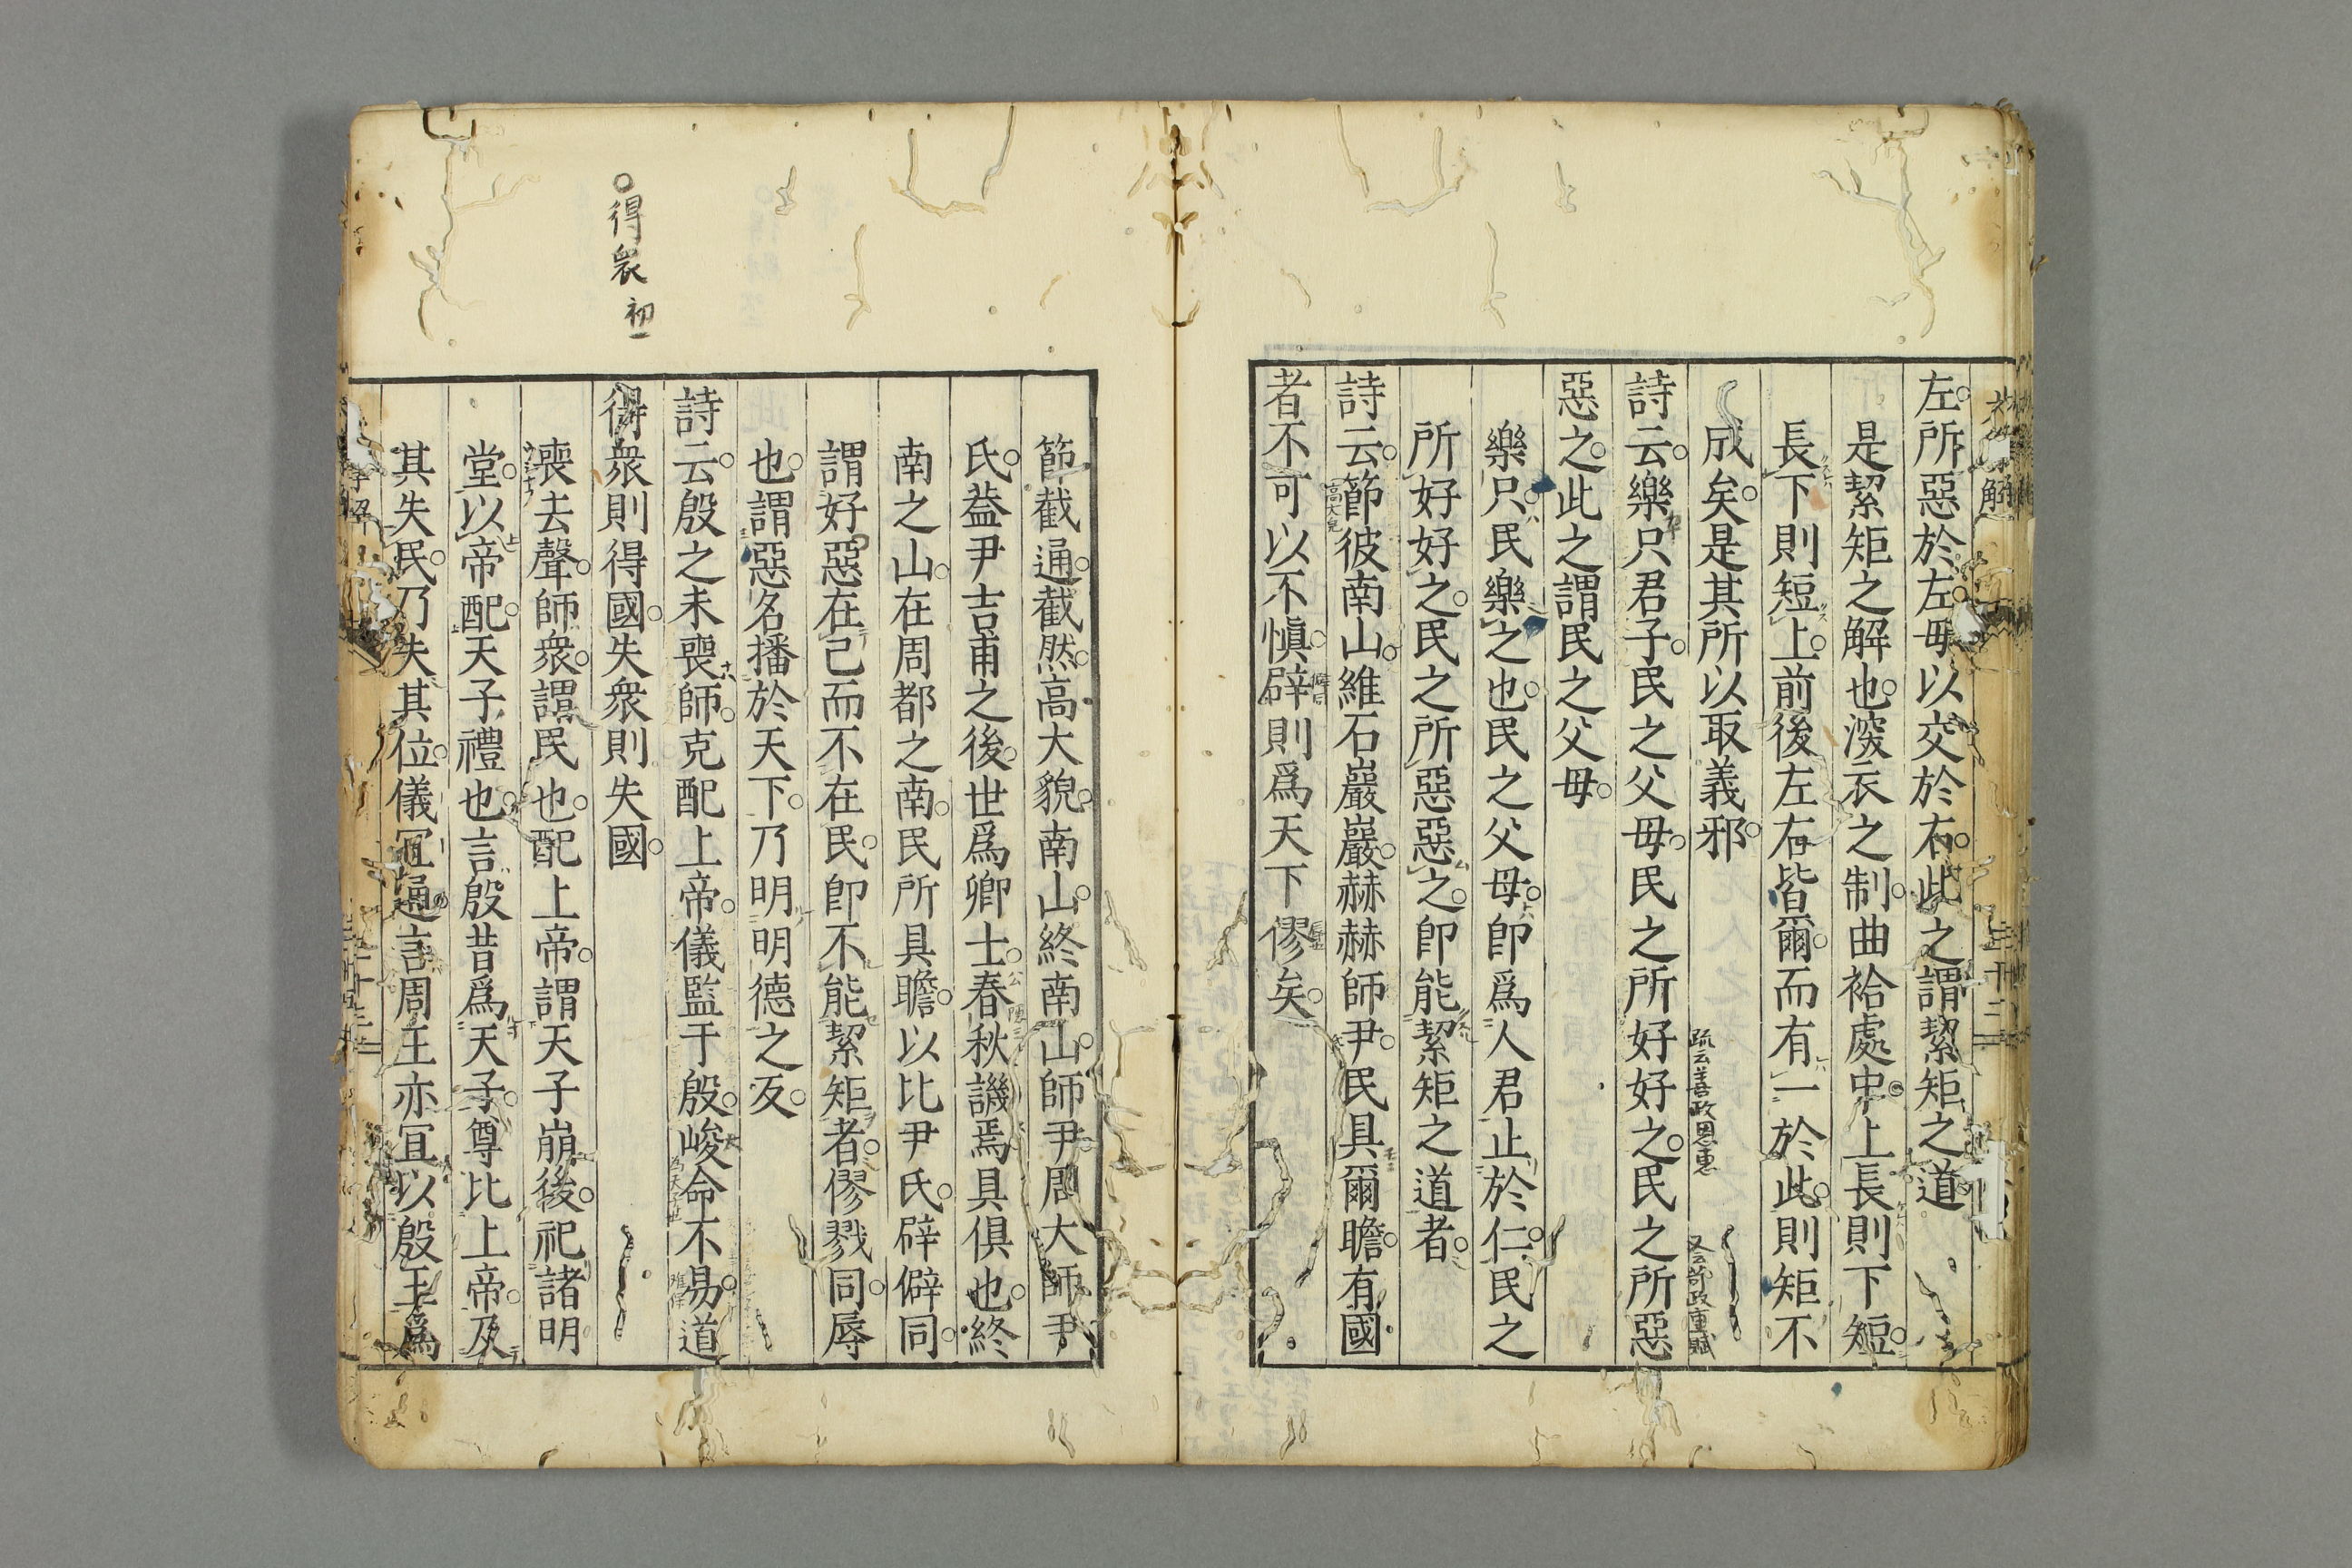 左所惡於左毋以交於右此之謂絜矩之道
是絜矩之解也深衣之制曲袷處中上長則下短
長下則短上前後左右皆爾而有一於此則矩不
成矣是其所以取義邪
疏云善政恩惠
又云苛政重賦
詩云樂只君子民之父母民之所好好之民之所惡
惡之此之謂民之父母
樂只民樂之也民之父母卽爲人君止於仁民之
所好好之民之所惡惡之卽能絜矩之道者
詩云節彼南山維石巖巖赫赫師尹民具爾瞻有國
高大皃
者不可以不愼辟則爲天下僇矣
節截通截然高大貌南山終南山師尹周大師尹
氏蓋尹吉甫之後世爲卿士春秋譏焉具俱也終
南之山在周都之南民所具瞻以比尹氏辟僻同
謂好惡在己而不在民卽不能絜矩者僇戮同辱
也謂惡名播於天下乃明明德之反
詩云殷之未喪師克配上帝儀監于殷峻命不易道
○得衆 初一
得衆則得國失衆則失國
喪去聲師衆謂民也配上帝謂天子崩後祀諸明
堂以帝配天子禮也言殷昔爲天子尊比上帝及
其失民乃失其位儀冝通言周王亦冝以殷王爲